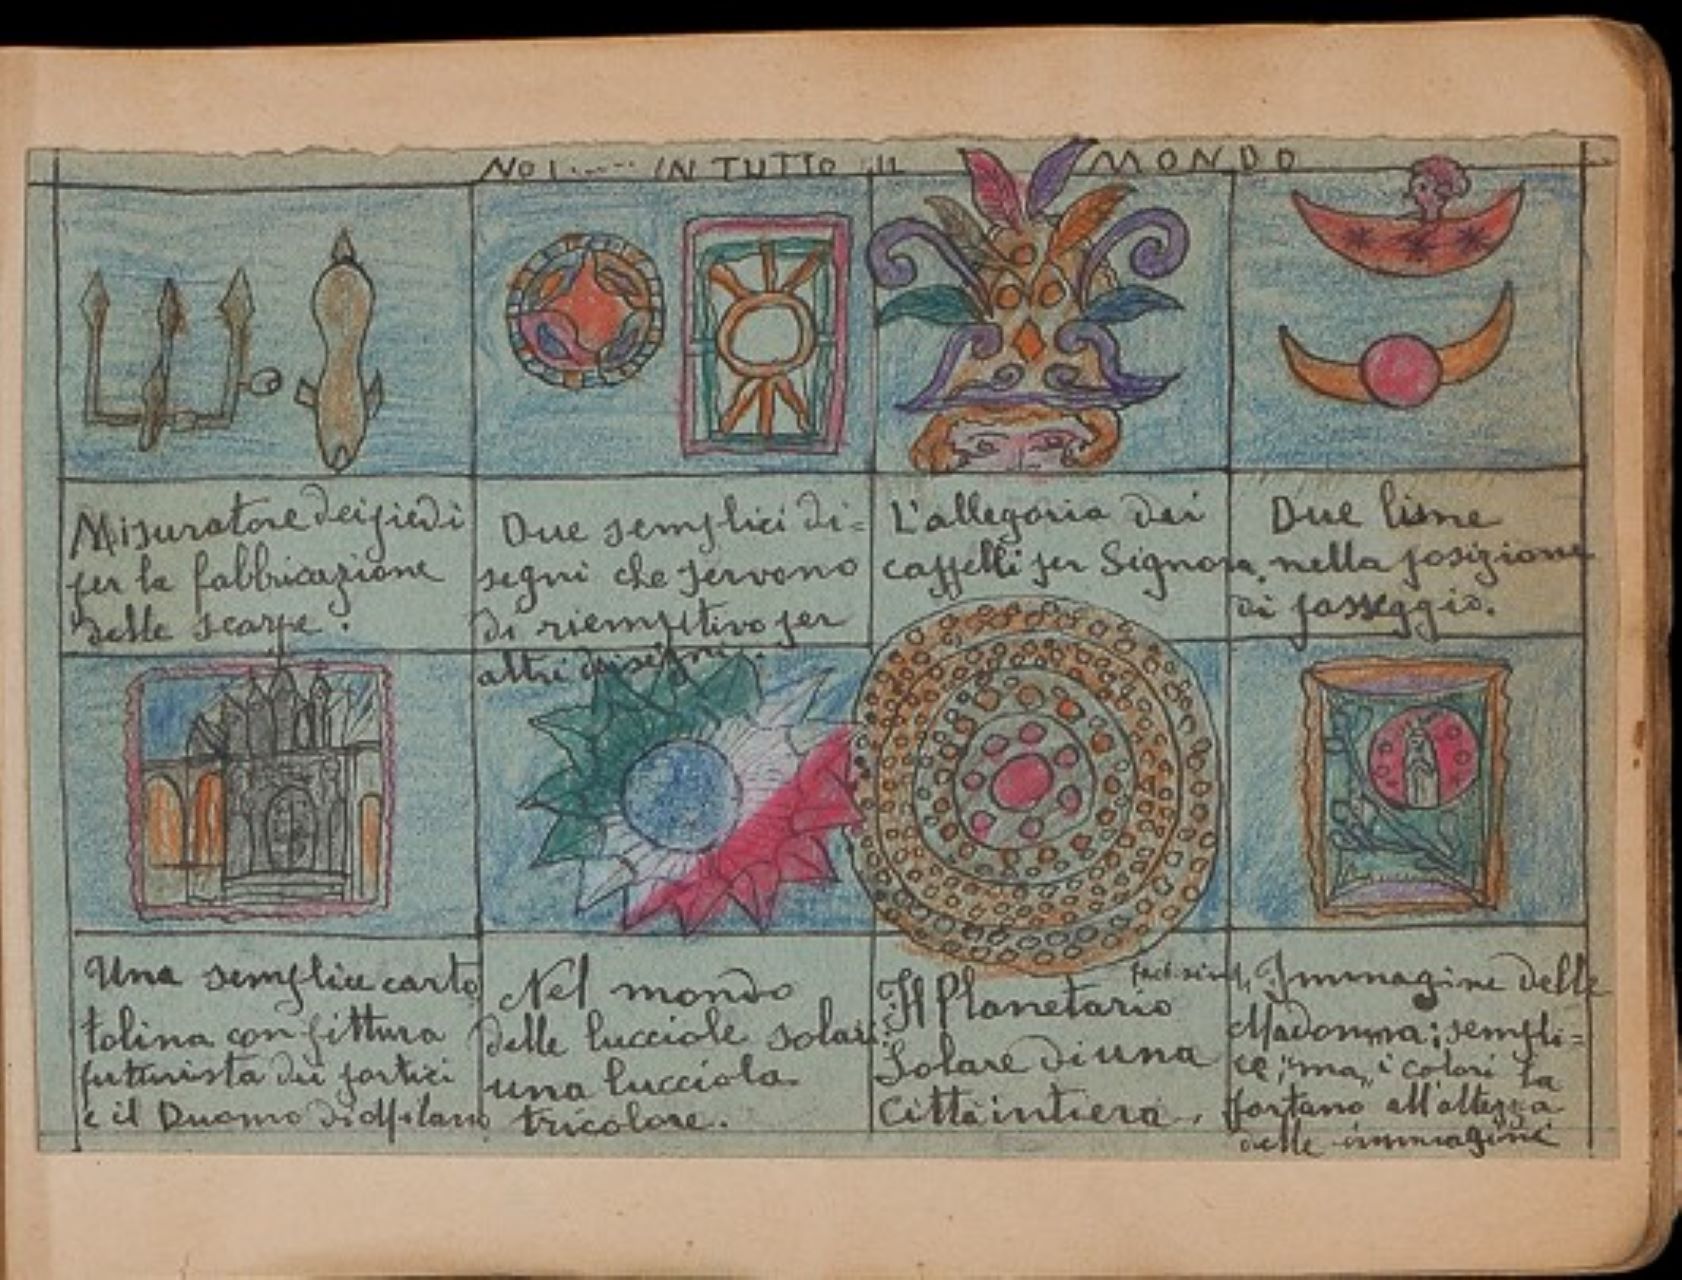 NOI..... IN TUTTO IL MONDO
Misuratore dei piedi
per la fabbricazione
delle scarpe.
Due semplici di=
segni che servono
di riempitivo per
altri disegni.
L'allegoria dei
cappelli per Signora.
Due lune
nella posizione
di passeggio.
Una semplice carto
tolina con pittura
futurista dei portici
e il Duomo di Milano
Nel mondo
delle lucciole solari:
una lucciola
tricolore.
Il Planetario
Solare di una
Città intiera.
Immagine della
Madonna; sempli=
ce, "ma" i colori la
portano all'altezza
delle immagini